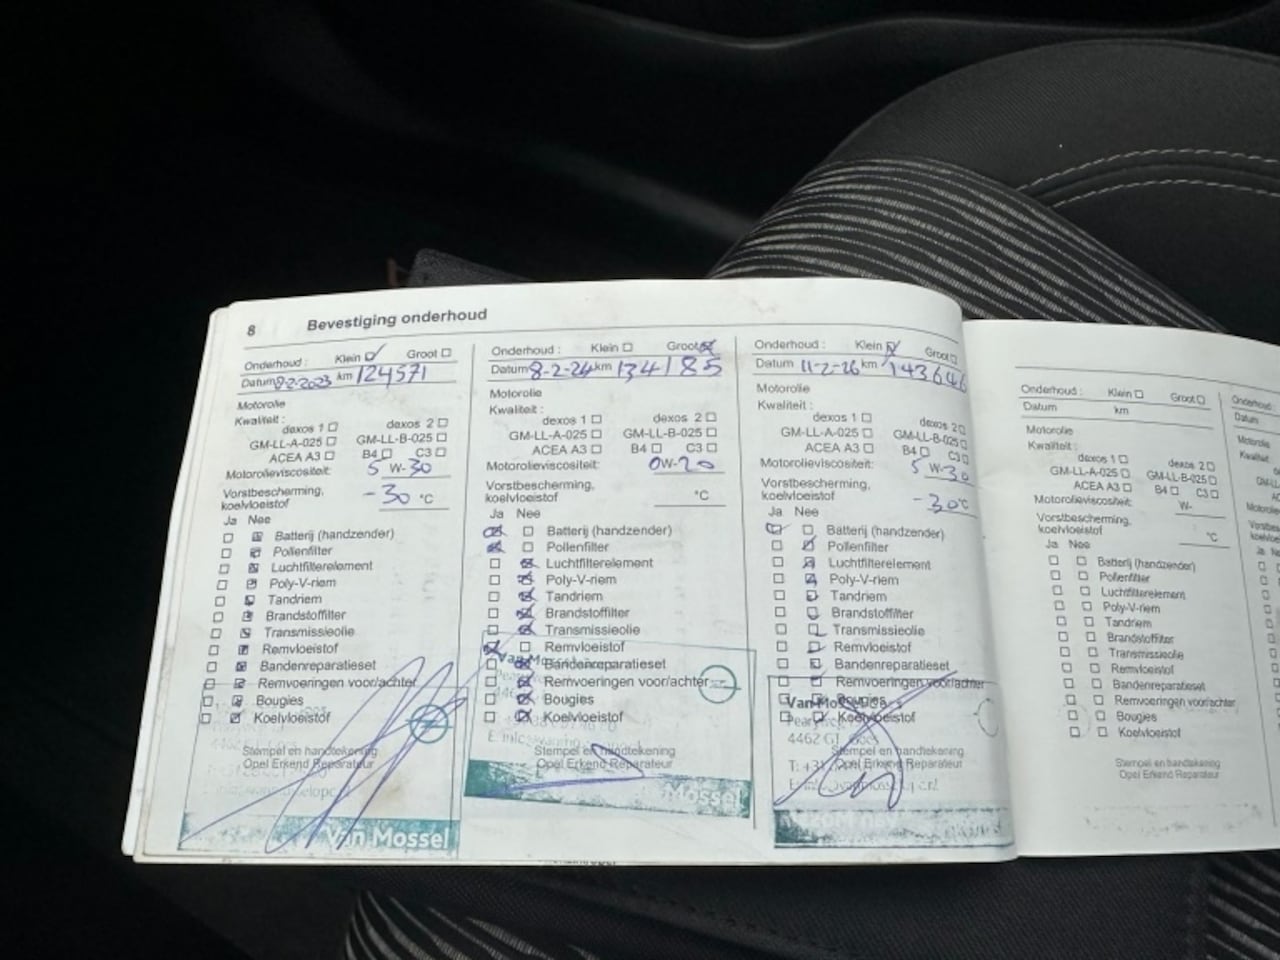 8 Bevestiging onderhoud
Onderhoud : Klein Groot
Datum 8-2-2023 km 124571
Motorolie
Kwaliteit :
dexos 1 dexos 2
GM-LL-A-025 GM-LL-B-025
ACEA A3 B4 C3
Motorolieviscositeit: 5 W-30
Vorstbescherming,
koelvloeistof -30 °C
Ja Nee
Batterij (handzender)
Pollenfilter
Luchtfilterelement
Poly-V-riem
Tandriem
Brandstoffilter
Transmissieolie
Remvloeistof
Bandenreparatieset
Remvoeringen voor/achter
Bougies
Koelvloeistof
Stempel en handtekening
Opel Erkend Reparateur
Van Mossel
Onderhoud : Klein Groot
Datum 8-2-24 km 134185
Motorolie
Kwaliteit :
dexos 1 dexos 2
GM-LL-A-025 GM-LL-B-025
ACEA A3 B4 C3
Motorolieviscositeit: 0W-20
Vorstbescherming,
koelvloeistof °C
Ja Nee
Batterij (handzender)
Pollenfilter
Luchtfilterelement
Poly-V-riem
Tandriem
Brandstoffilter
Transmissieolie
Remvloeistof
Bandenreparatieset
Remvoeringen voor/achter
Bougies
Koelvloeistof
Stempel en handtekening
Opel Erkend Reparateur
Mossel
Onderhoud : Klein Groot
Datum 11-2-26 km 143646
Motorolie
Kwaliteit :
dexos 1 dexos 2
GM-LL-A-025 GM-LL-B-025
ACEA A3 B4 C3
Motorolieviscositeit: 5 W-30
Vorstbescherming,
koelvloeistof -30°C
Ja Nee
Batterij (handzender)
Pollenfilter
Luchtfilterelement
Poly-V-riem
Tandriem
Brandstoffilter
Transmissieolie
Remvloeistof
Bandenreparatieset
Remvoeringen voor/achter
Van Mossel Bougies
Koelvloeistof
4462
Stempel en handtekening
Opel Erkend Reparateur
Onderhoud : Klein Groot
Datum km
Motorolie
Kwaliteit :
dexos 1 dexos 2
GM-LL-A-025 GM-LL-B-025
ACEA A3 B4 C3
Motorolieviscositeit: W-
Vorstbescherming,
koelvloeistof °C
Ja Nee
Batterij (handzender)
Pollenfilter
Luchtfilterelement
Poly-V-riem
Tandriem
Brandstoffilter
Transmissieolie
Remvloeistof
Bandenreparatieset
Remvoeringen voor/achter
Bougies
Koelvloeistof
Stempel en handtekening
Opel Erkend Reparateur
Onderhoud :
Datum
Motorolie